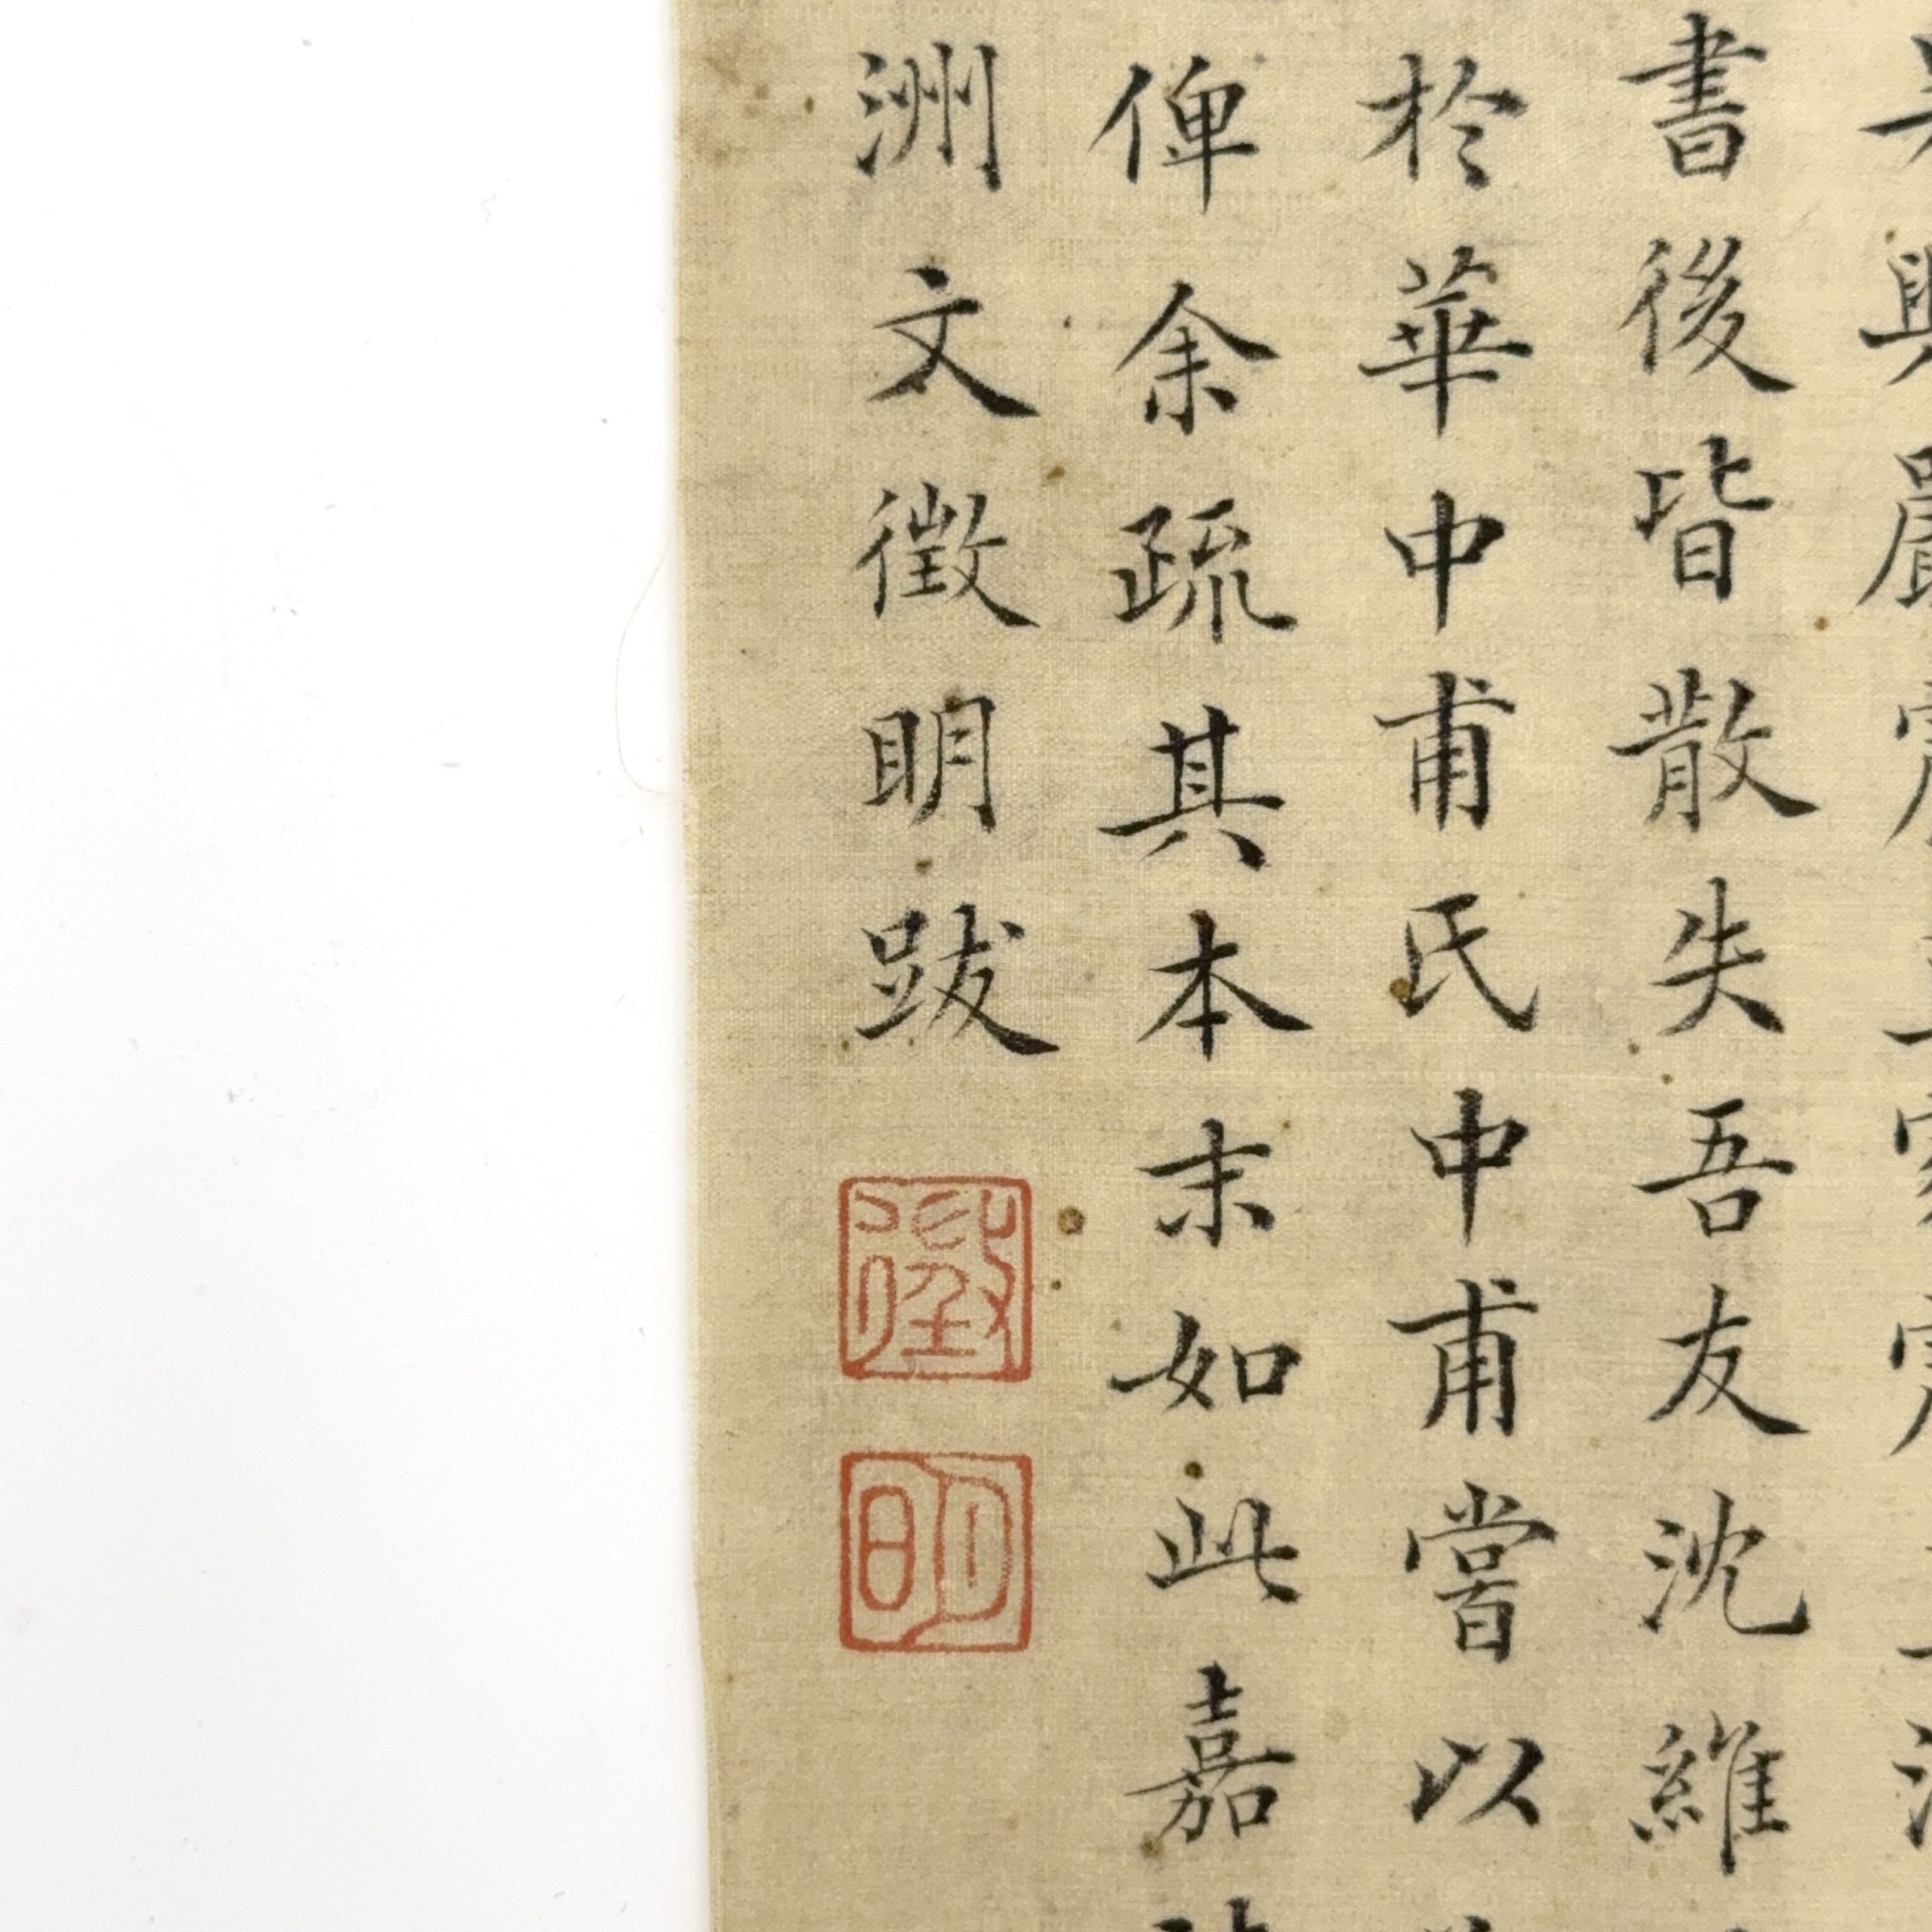 興嚴
書後皆散失吾友沈維
於華中甫氏中甫嘗以
俾余疏其本末如此嘉
洲文徵明跋
徵
明